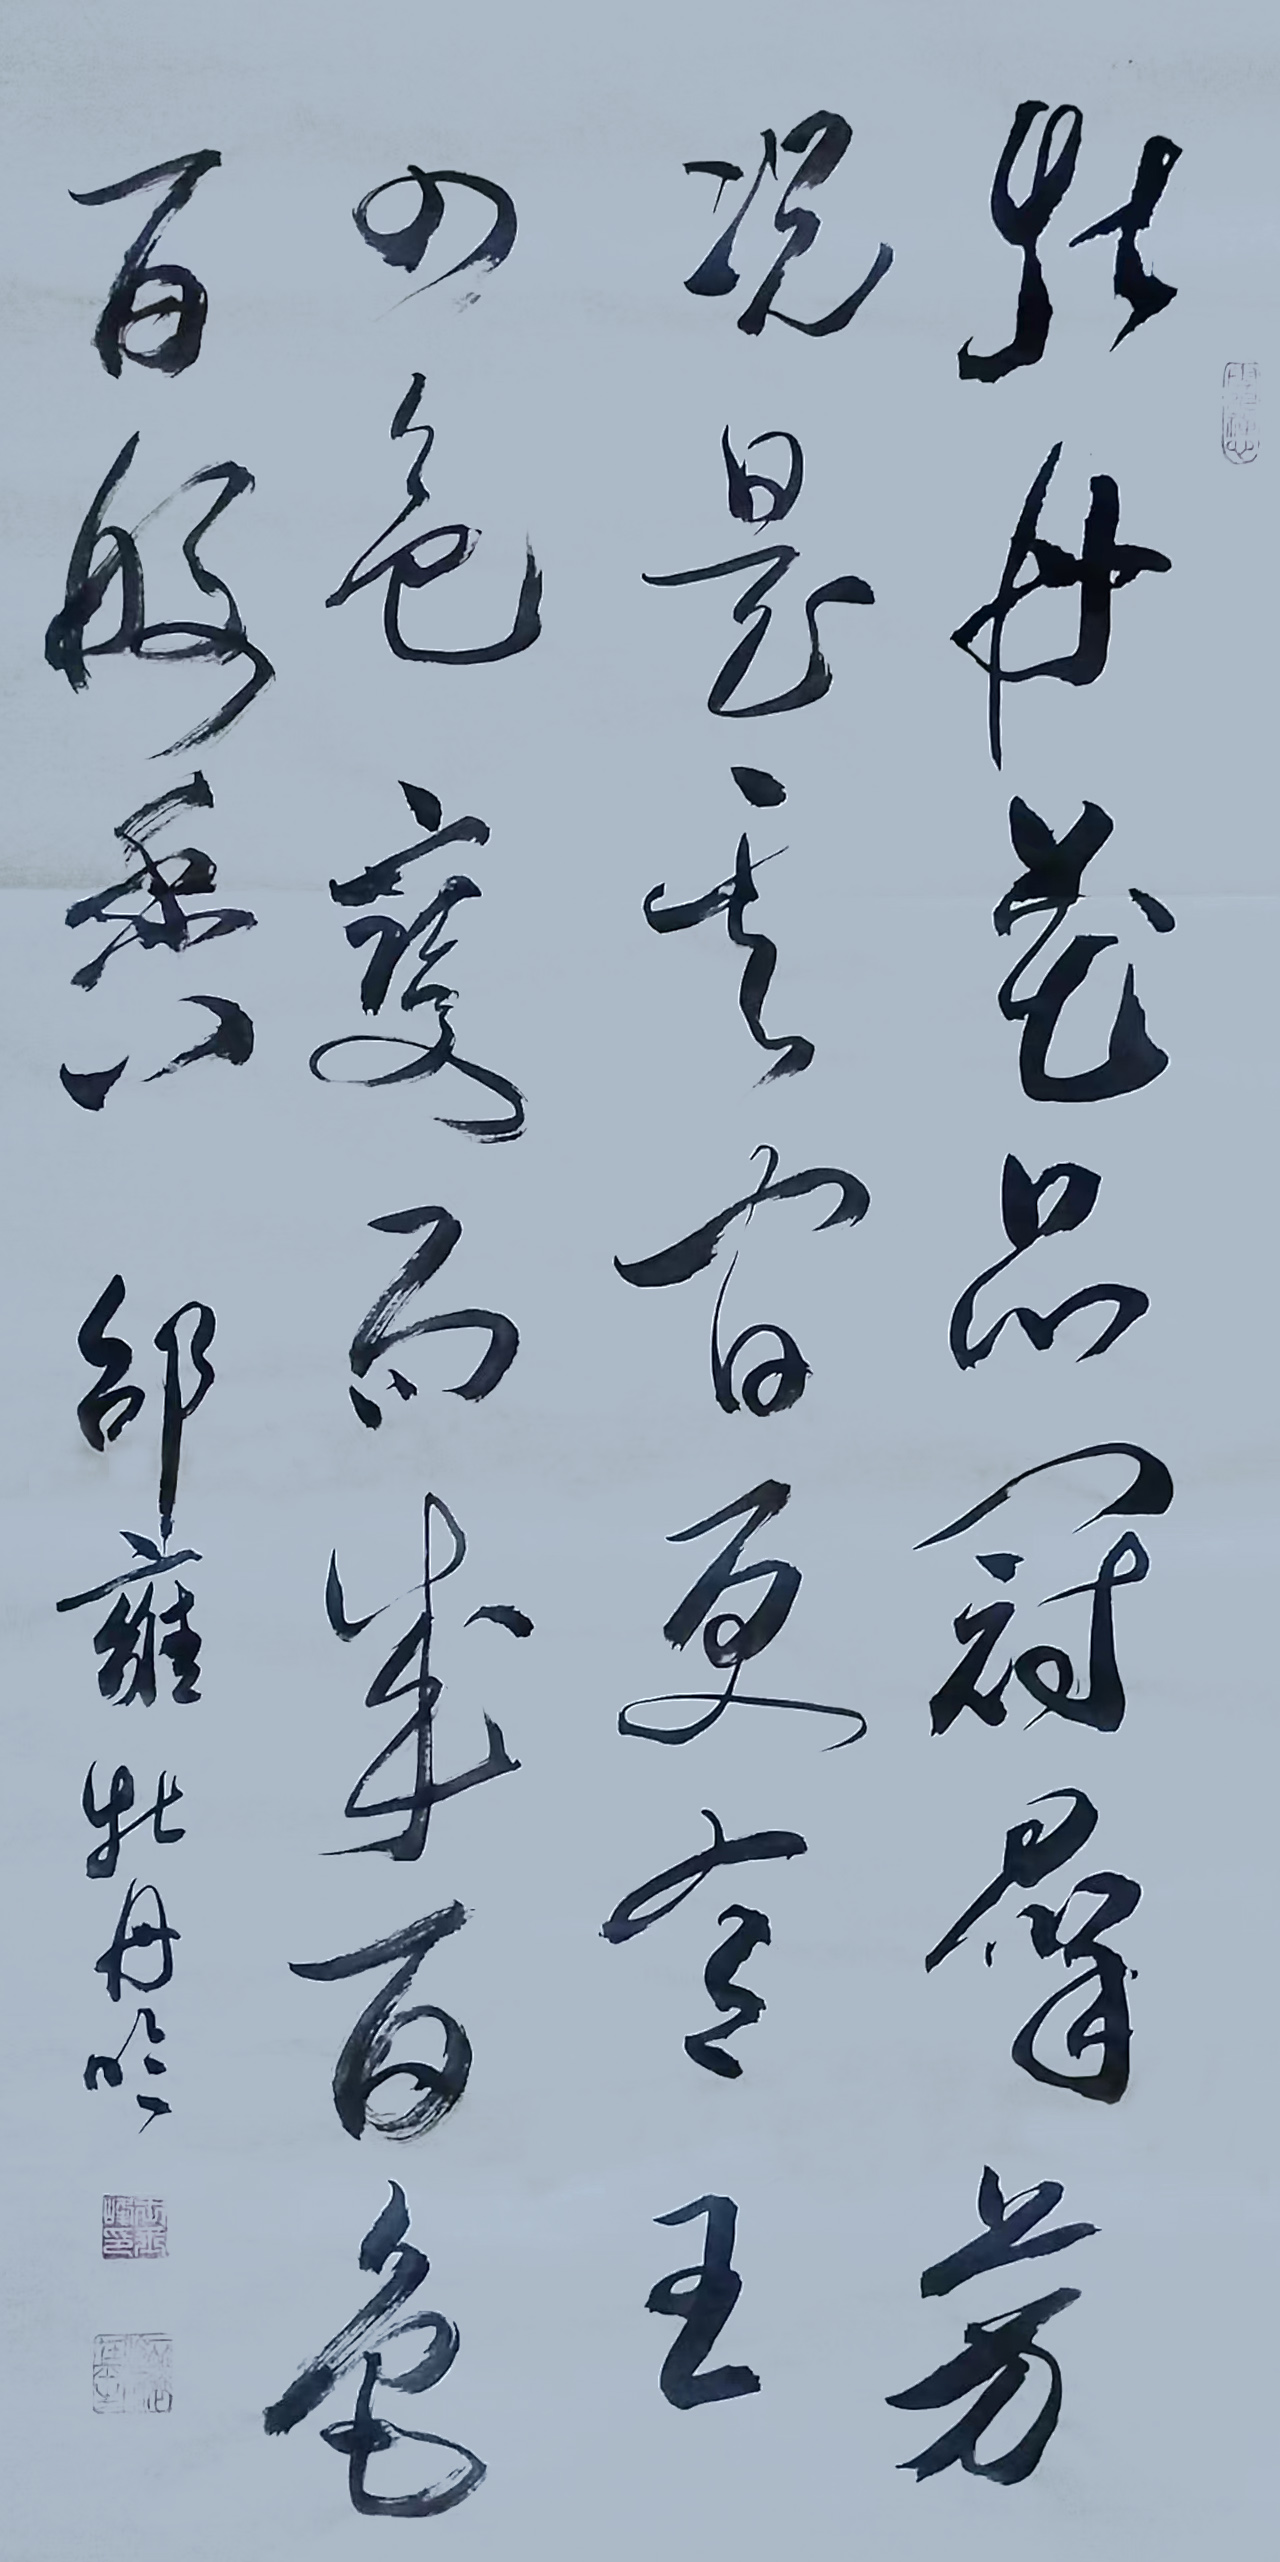 牡丹花品冠群芳
况是其间更有王
四色变而成百色
百般香 邵雍牡丹吟